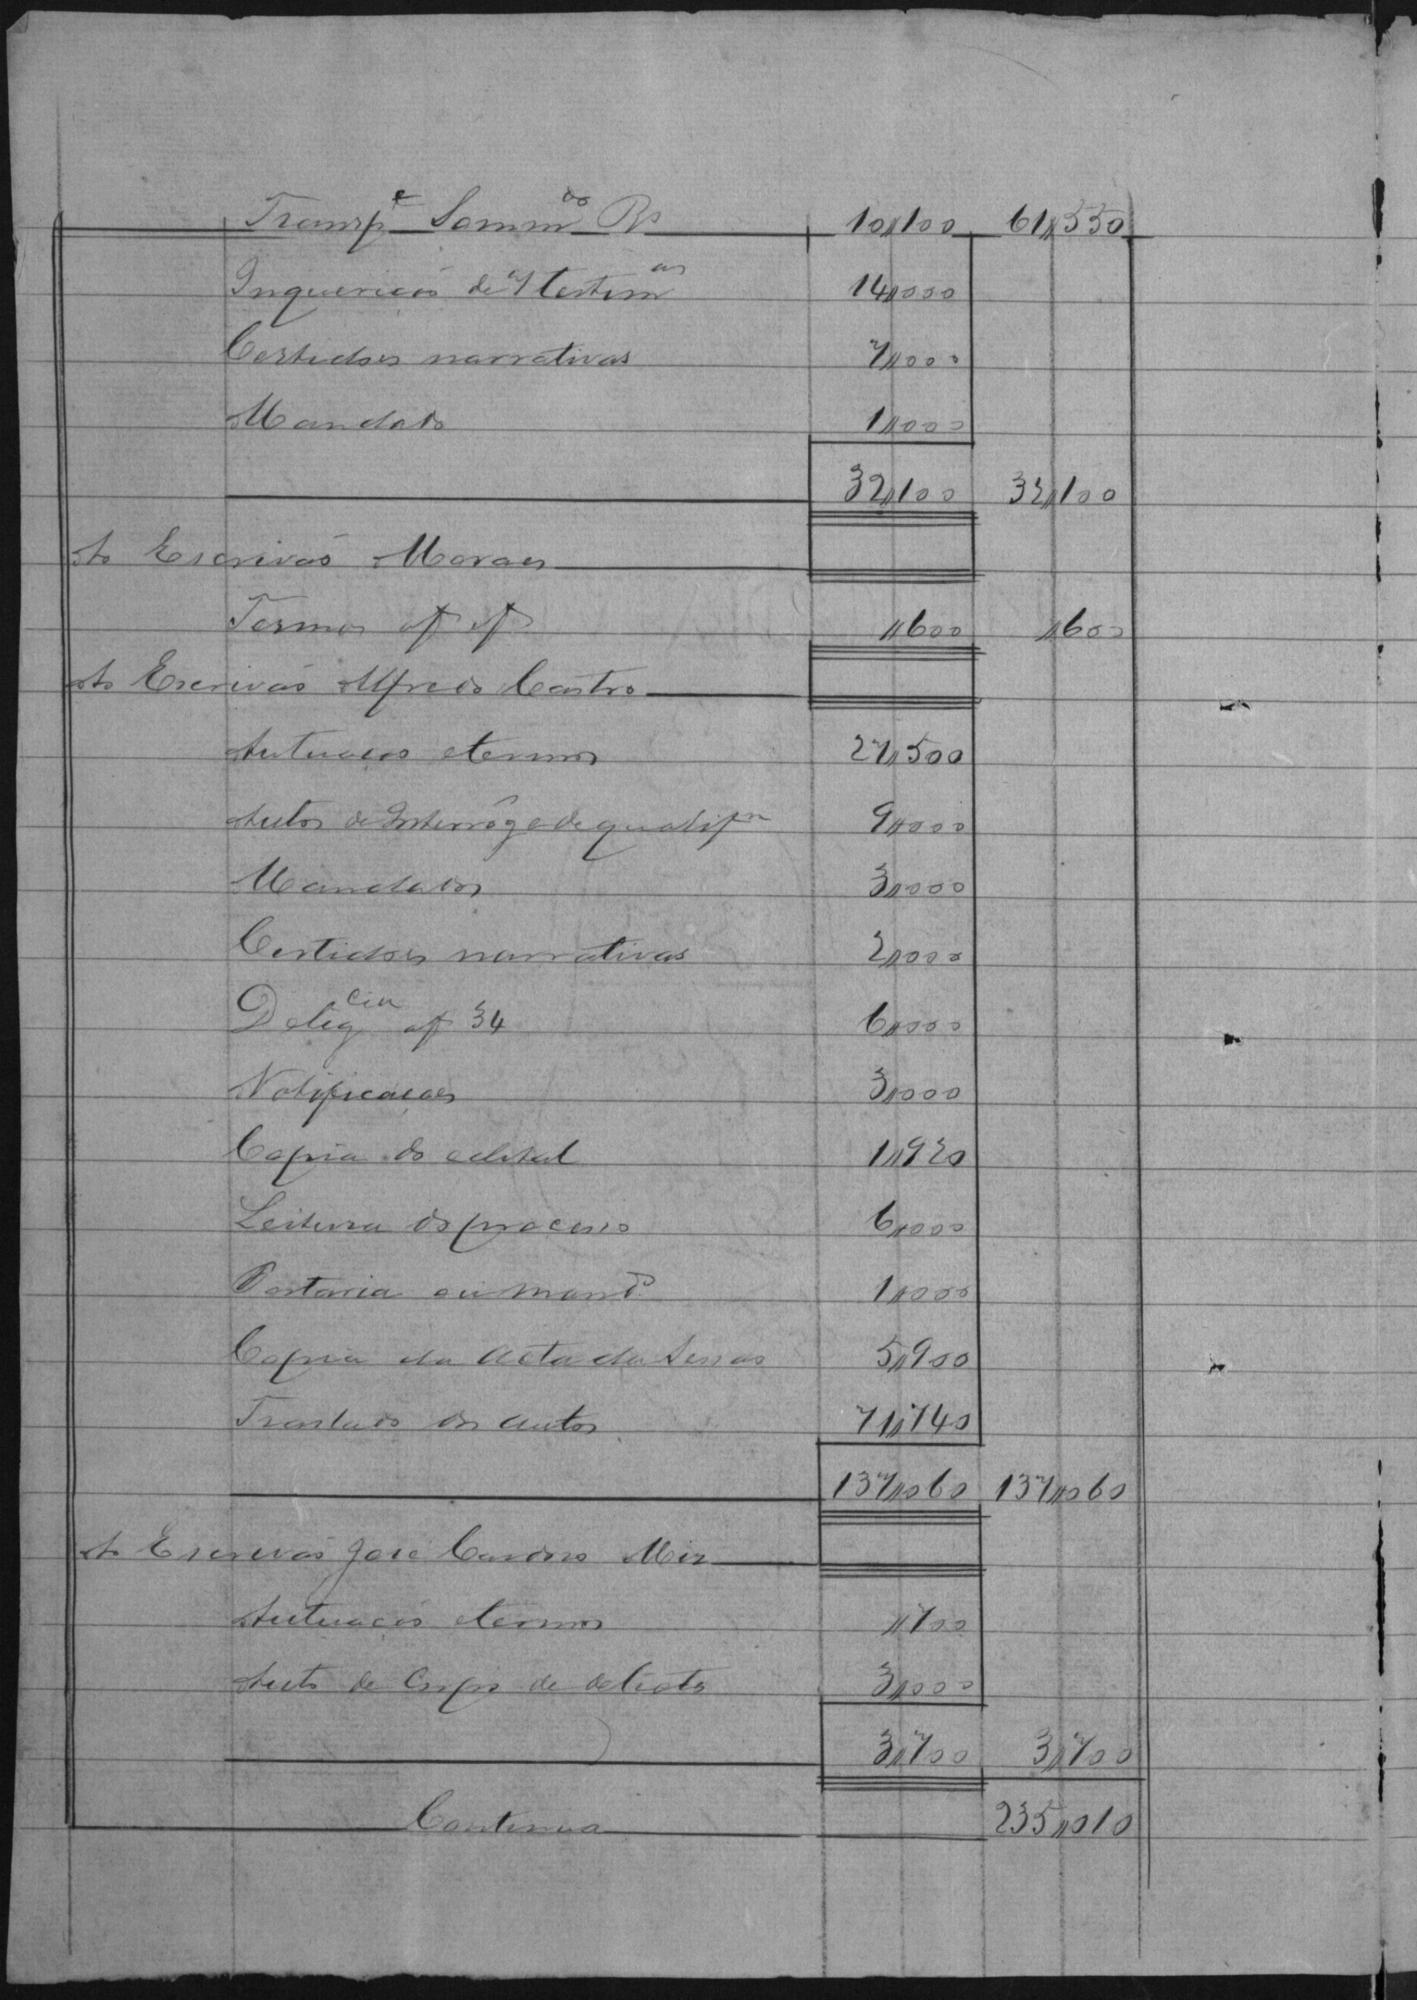 Transp.e Somm.do Rs 10"100 61"550
Inquerição de 7 testim.as 14"000
Certidões narrativas 7"000
Mandado 1"000
32"100 32"100
Ao Escrivão Moraes
Termos "600 "600
Ao Escrivão Alfredo Castro
Autuação e termos 27"500
Autos de Interrog e de qualif.m 9"000
Mandados 3"000
Certidões narrativas 2"000
Delig.cia af 34 6"000
Notificações 3"000
Copia do edital 1"920
Leitura do processo 6"000
Portaria ou mand.o 1"000
Copia da acta da Sessão 5"900
Traslado dos autos 71"740
137"060 137"060
Ao Escrivão José Cardoso
Autuação e termos "700
Auto de Corpo de delicto 3"000
3"700 3"700
Continua 235"010